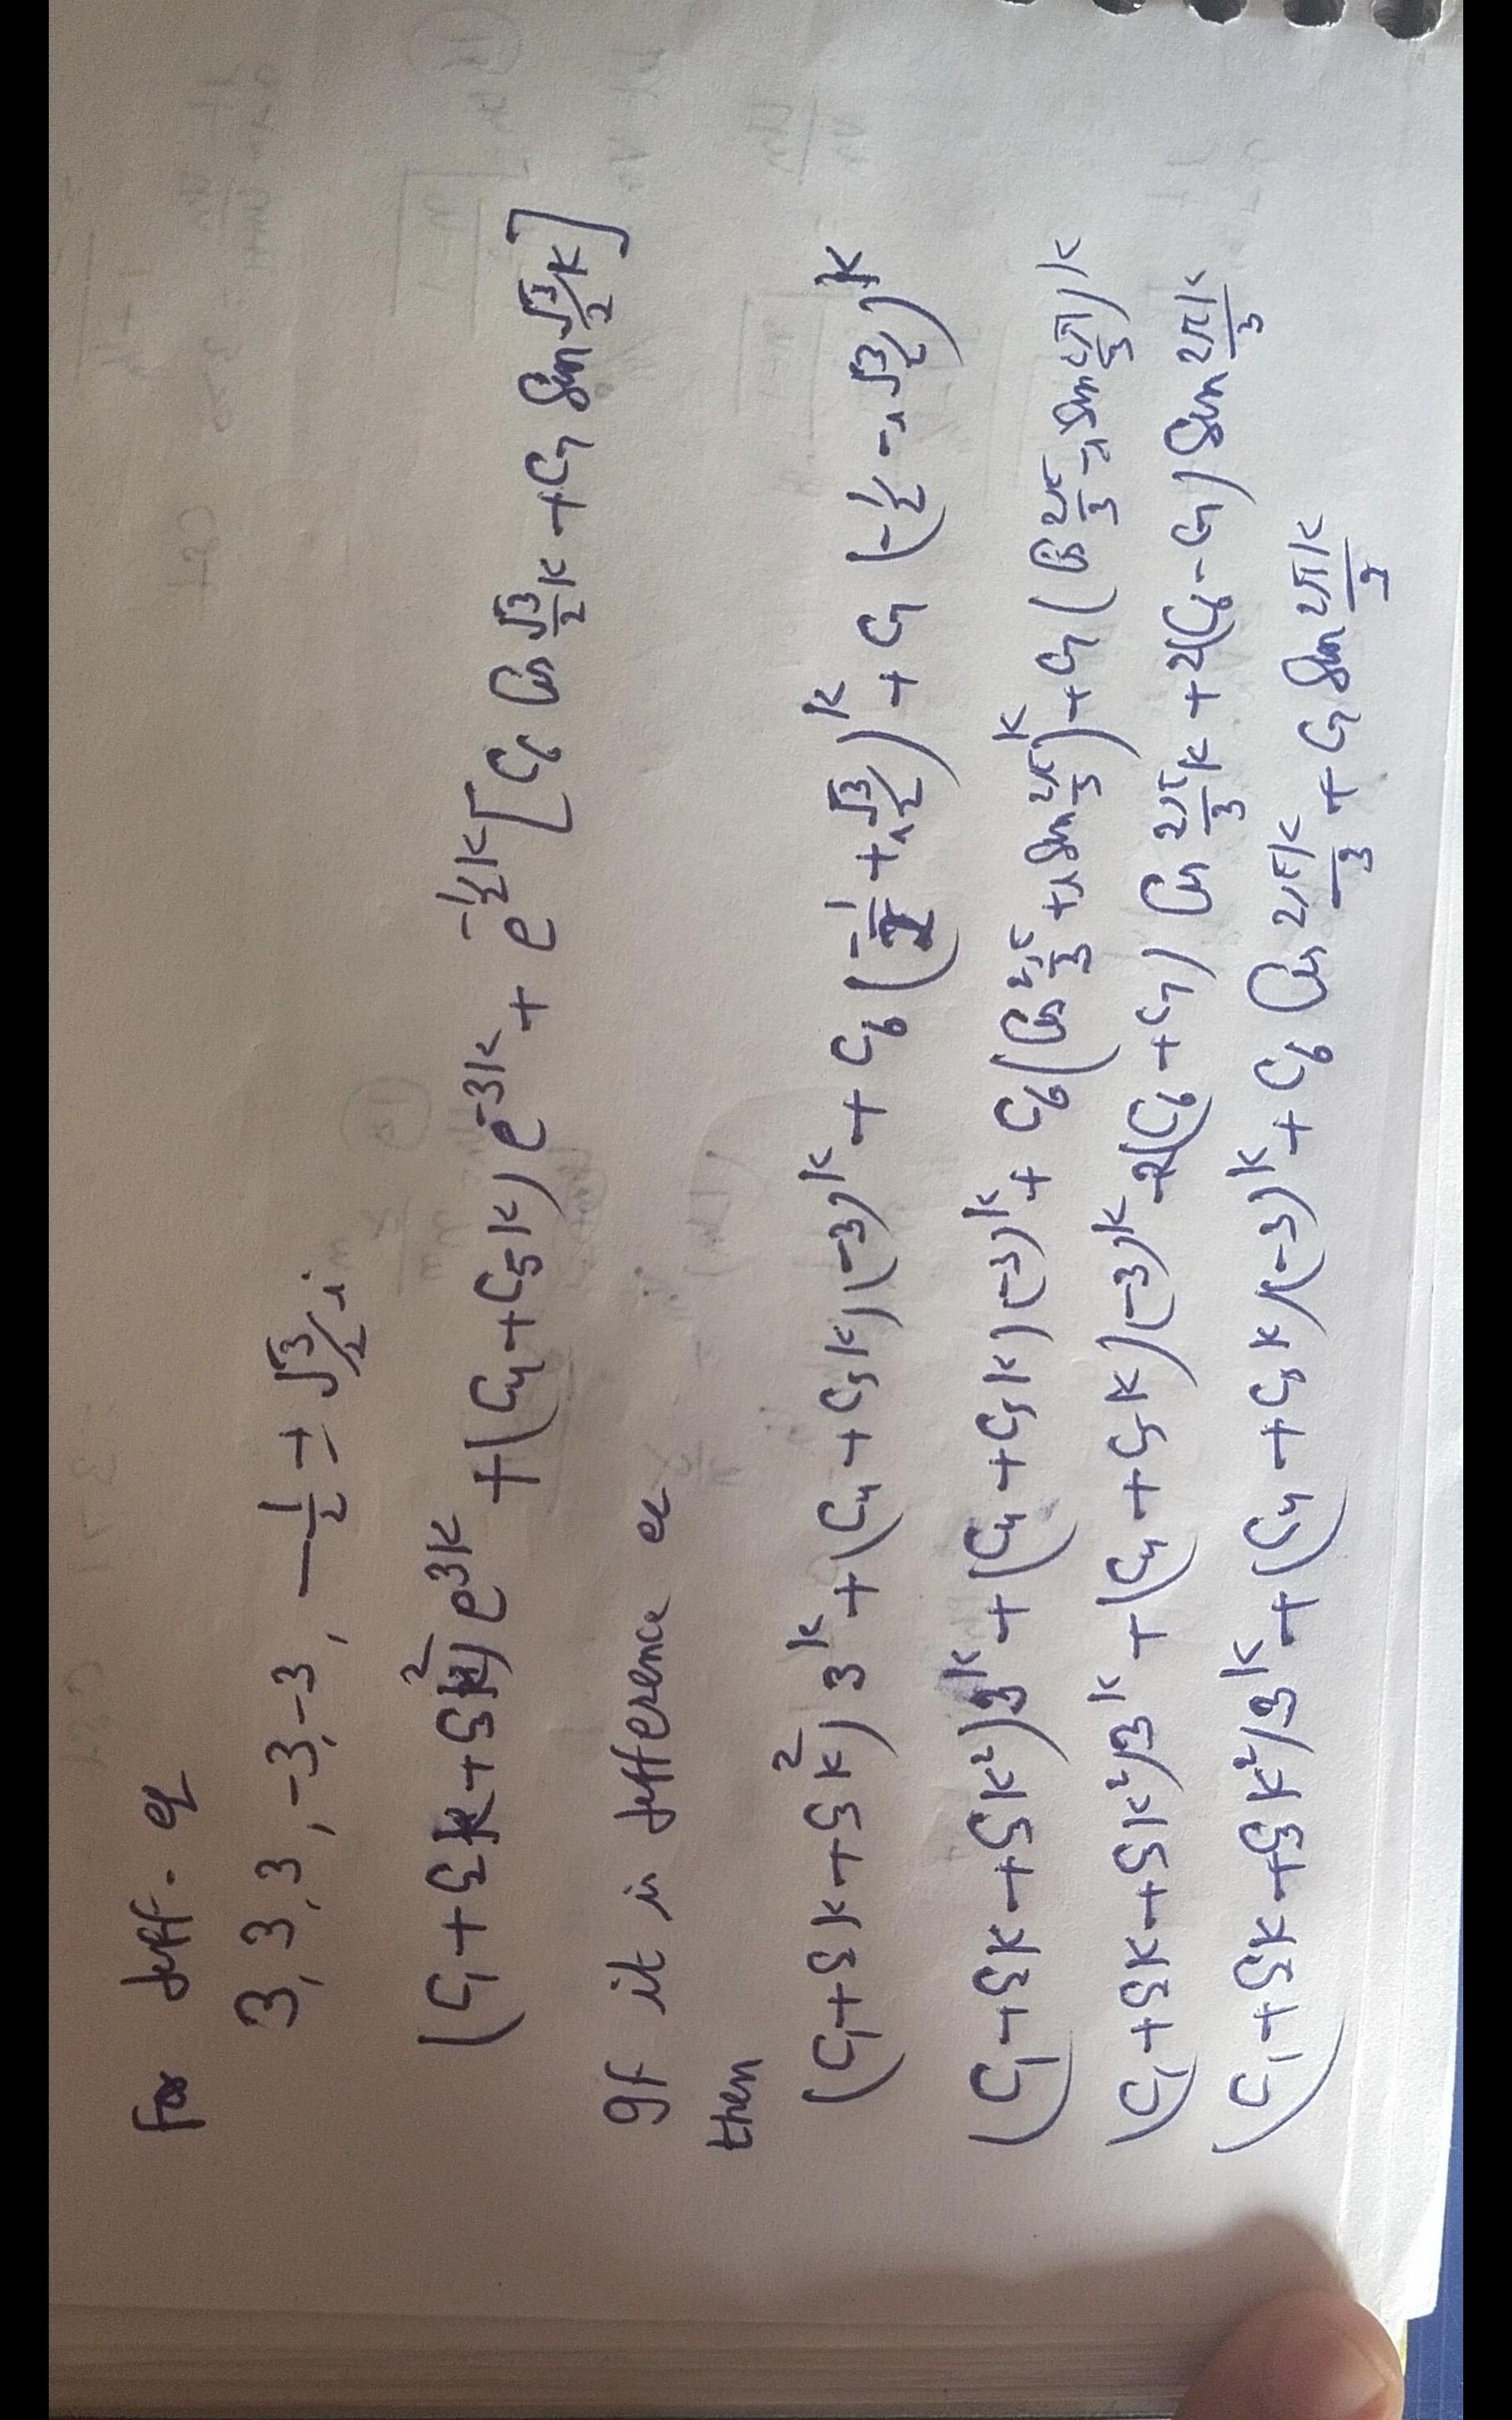 For diff. eq
3, 3, 3, -3, -3, -1/2 ± √3/2 i
(C₁ + C₂k + C₃k²) e^{3k} + (C₄ + C₅k) e^{-3k} + e^{-1/2 k} [C₆ Cos √3/2 k + C₇ Sin √3/2 k]
If it is difference eq
then
(C₁ + C₂k + C₃k²) 3^k + (C₄ + C₅k) (-3)^k + C₆ (-1/2 + i √3/2)^k + C₇ (-1/2 - i √3/2)^k
(C₁ + C₂k + C₃k²) 3^k + (C₄ + C₅k) (-3)^k + C₆ (Cos 2π/3 + i Sin 2π/3)^k + C₇ (Cos 2π/3 - i Sin 2π/3)^k
(C₁ + C₂k + C₃k²) 3^k + (C₄ + C₅k) (-3)^k + (C₆ + C₇) Cos 2π/3 k + i(C₆ - C₇) Sin 2πk/3
(C₁ + C₂k + C₃k²) 3^k + (C₄ + C₅k) (-3)^k + C₆ Cos 2πk/3 + C₇ Sin 2πk/3